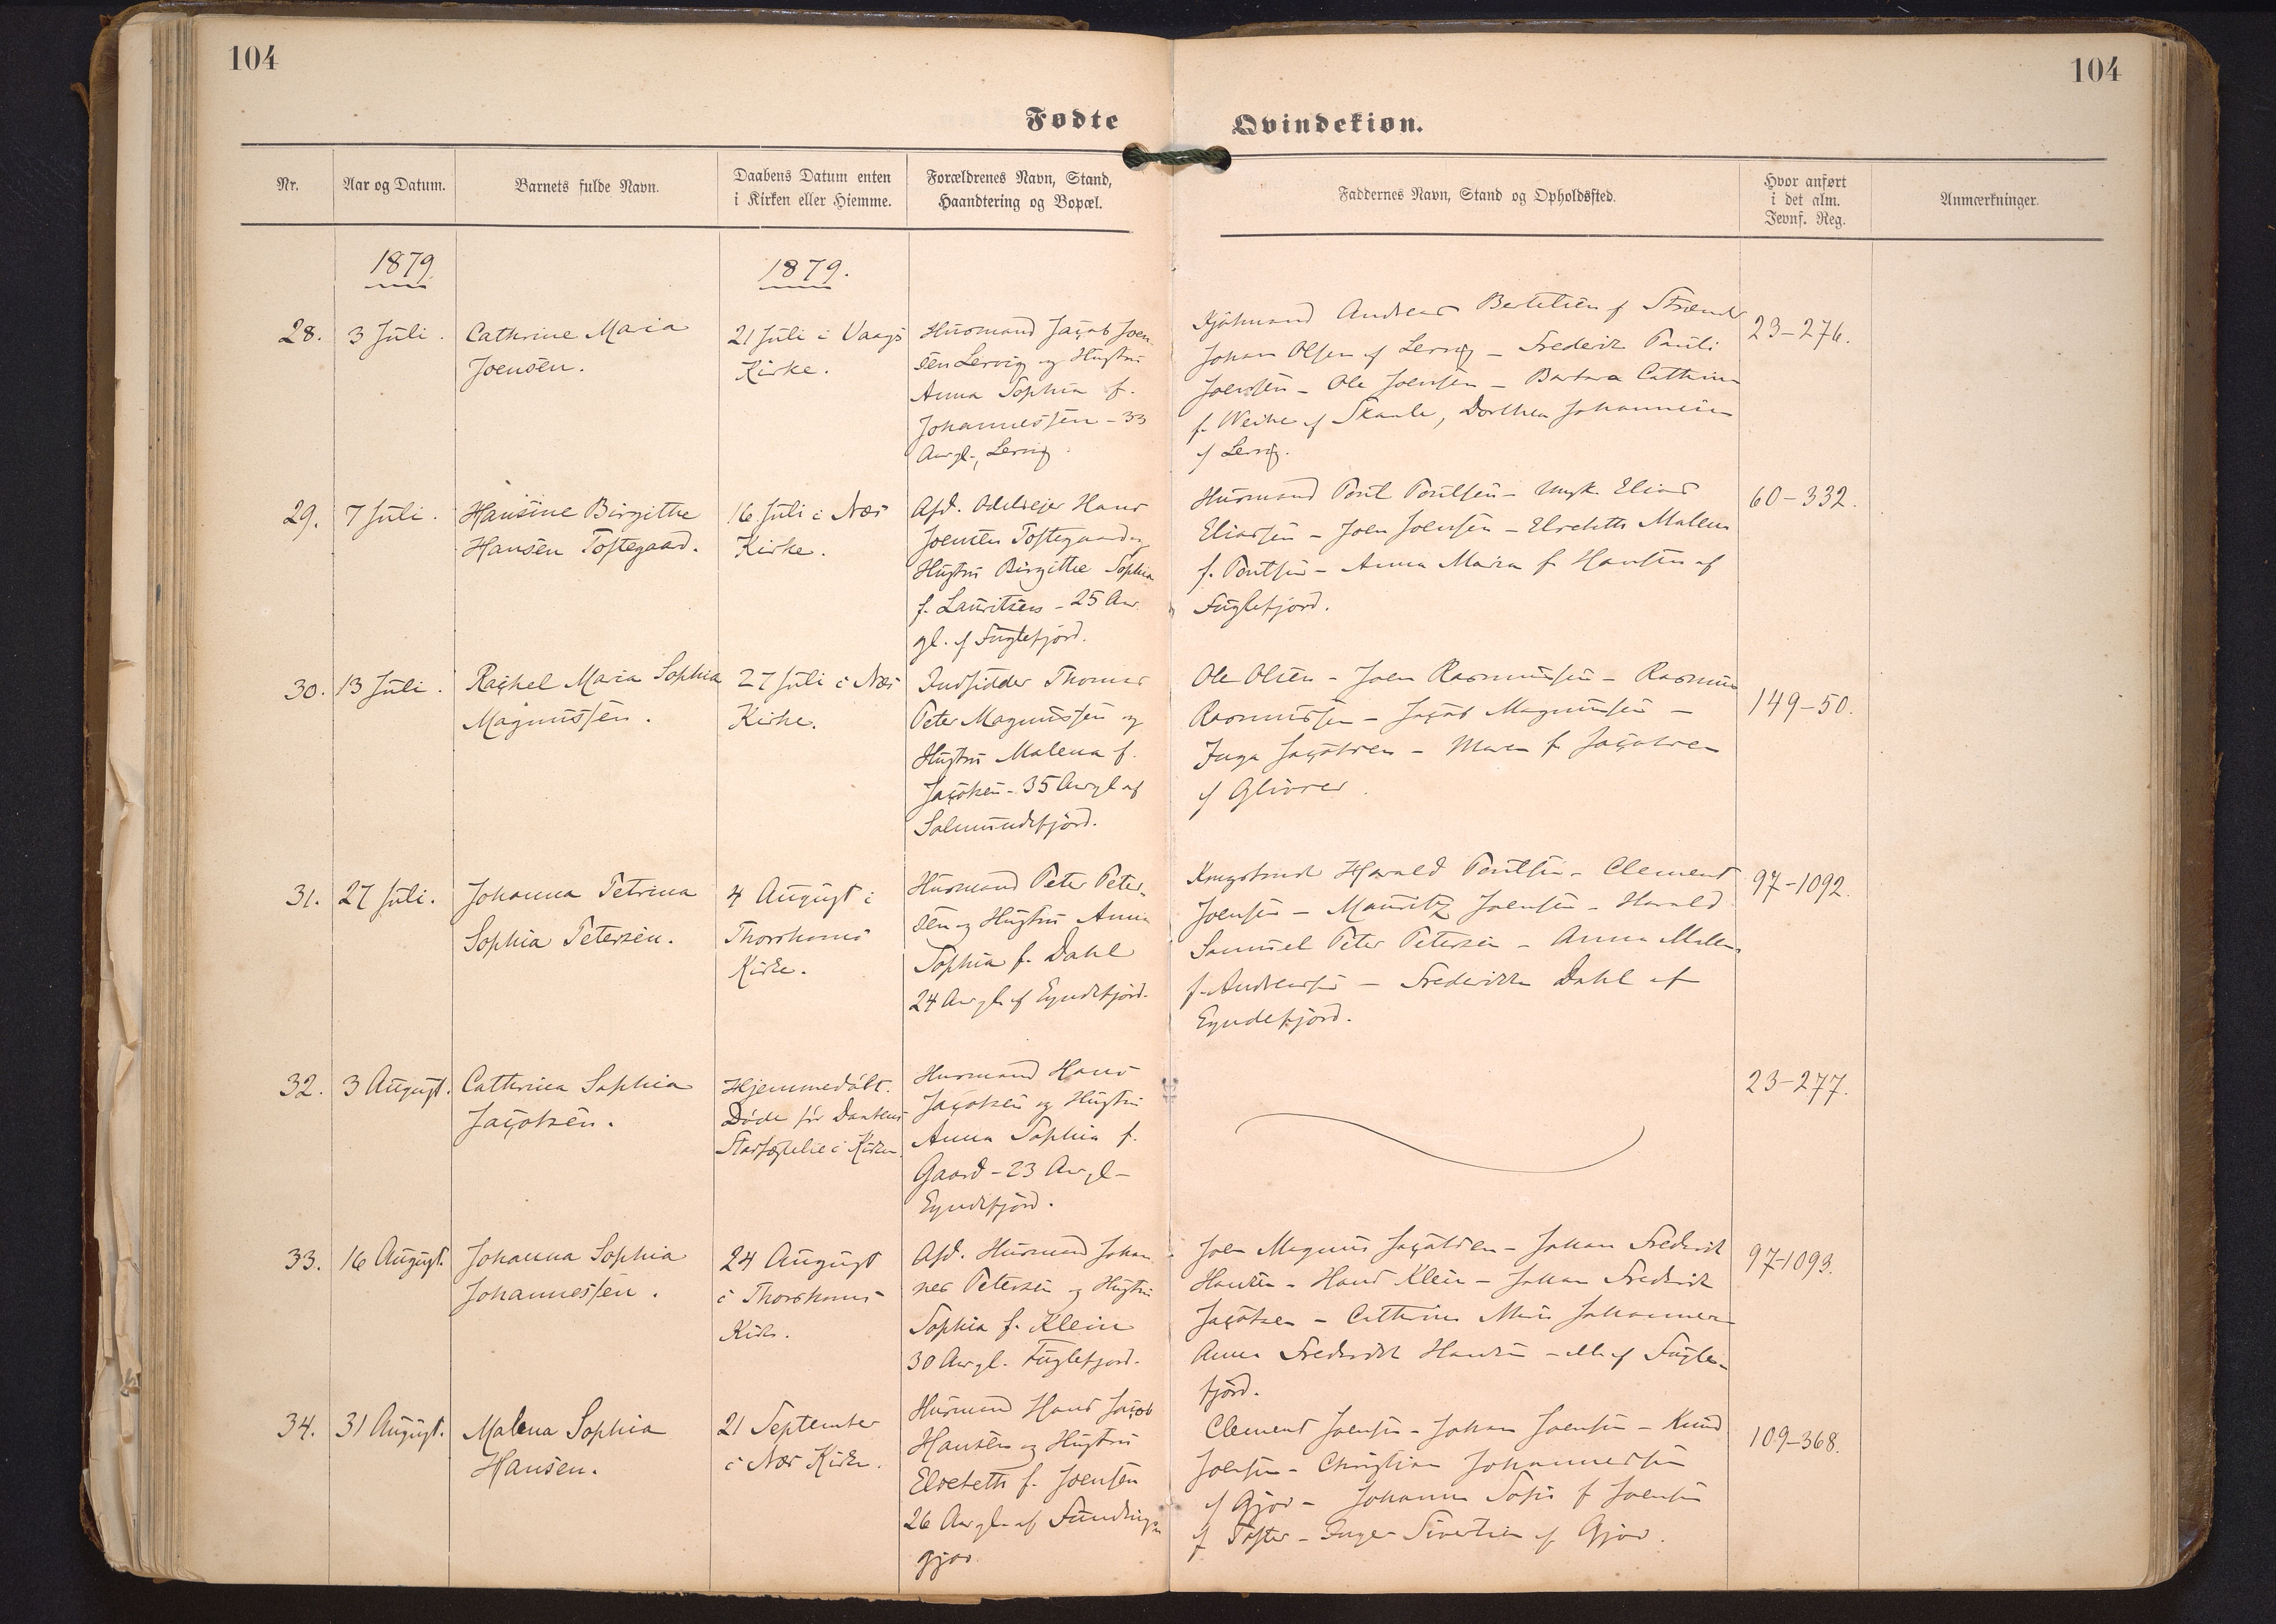 104
104
Fødte
Qvindekiøn.
Nr.
Aar og Datum.
Barnets fulde Navn.
Daabens Datum enten
i Kirken eller Hiemme.
Forældrenes Navn, Stand,
Haandtering og Bopæl.
Faddernes Navn, Stand og Opholdssted.
Hvor anført
i det alm.
Jevnf. Reg.
Anmærkninger.
1879.
1879.
28.
3 Juli.
Cathrine Maria
Joensen.
21 Juli i Vaags
Kirke.
Husmand Jacob Joen
sen Lervig og Hustru
Anna Sophia f.
Johannessen - 33
Aar gl., Lervig.
Andreas Bertelsen af
Johan Olsen af Lervig - Frederik Pauli
Joensen - Ole Joensen - Barbara Cathrine
f. Weihe af Skaale, Dorthea Johannesen
af Lervig.
23-276.
29.
7 Juli.
Hansine Birgitthe
Hansen Toftegaard.
16 Juli i Næs
Kirke.
Afd. Odelsejer Hans
Joensen Toftegaard og
Hustru Birgitthe Sophia
f. Lauritsen - 25 Aar
gl. af Fuglefjord.
Husmand Poul Poulsen - Ungk. Elias
Eliassen - Joen Joensen - Elsebeth Malene
f. Poulsen - Anna Maria f. Hansen af
Fuglefjord.
60-332.
30.
13 Juli.
Rachel Maria Sophia
Magnussen.
27 Juli i Næs
Kirke.
Indsidder Thomas
Peter Magnussen og
Hustru Malena f.
Jacobsen - 35 Aar gl af
Salmundefjord.
Ole Olsen - Joen Rasmussen - Rasmus
Rasmussen - Jacob Magnussen -
Inga Jacobsen - Maren f. Jacobsen
af Glivrer.
149-50.
31.
27 Juli.
Johanna Petrina
Sophia Petersen.
4 August i
Thorshavns
Kirke.
Husmand Peter Peter-
sen og Hustru Anna
Sophia f. Dahl
24 Aar gl. af Eyndefjord.
Kongsbonde Harald Poulsen - Clement
Joensen - Mauritz Joensen - Harald
Samuel Peter Petersen - Anna Malene
f. Andreasen - Frederikke Dahl af
Eyndefjord.
97-1092.
32.
3 August.
Cathrina Sophia
Jacobsen.
Hjemmedøbt.
Døde før Daabens
Stadfæstelse i Kirken.
Husmand Hans
Jacobsen og Hustru
Anna Sophia f.
Gaard - 23 Aar gl -
Eyndefjord.
23-277.
33.
16 August.
Johanna Sophia
Johannessen.
24 August
i Thorshavns
Kirke.
Afd. Husmand Johan
nes Petersen og Hustru
Sophia f. Klein
30 Aar gl. Fuglefjord.
Joen Magnus Jacobsen - Johan Frederik
Hansen - Hans Klein - Johan Frederik
Jacobsen - Cathrine Marie Johannesen
Anna Frederikke Hansen - alle af Fugle-
fjord.
97-1093.
34.
31 August.
Malena Sophia
Hansen.
21 September
i Næs Kirke.
Husmand Hans Jacob
Hansen og Hustru
Elsebeth f. Joensen
26 Aar gl. af Funding
gjov
Clement Joensen - Johan Joensen - Knud
Joensen - Christian Johannessen
af Gjov - Johanne Sofie f. Joensen
af Tofter - Inger Sivertsen af Gjov.
109-368.